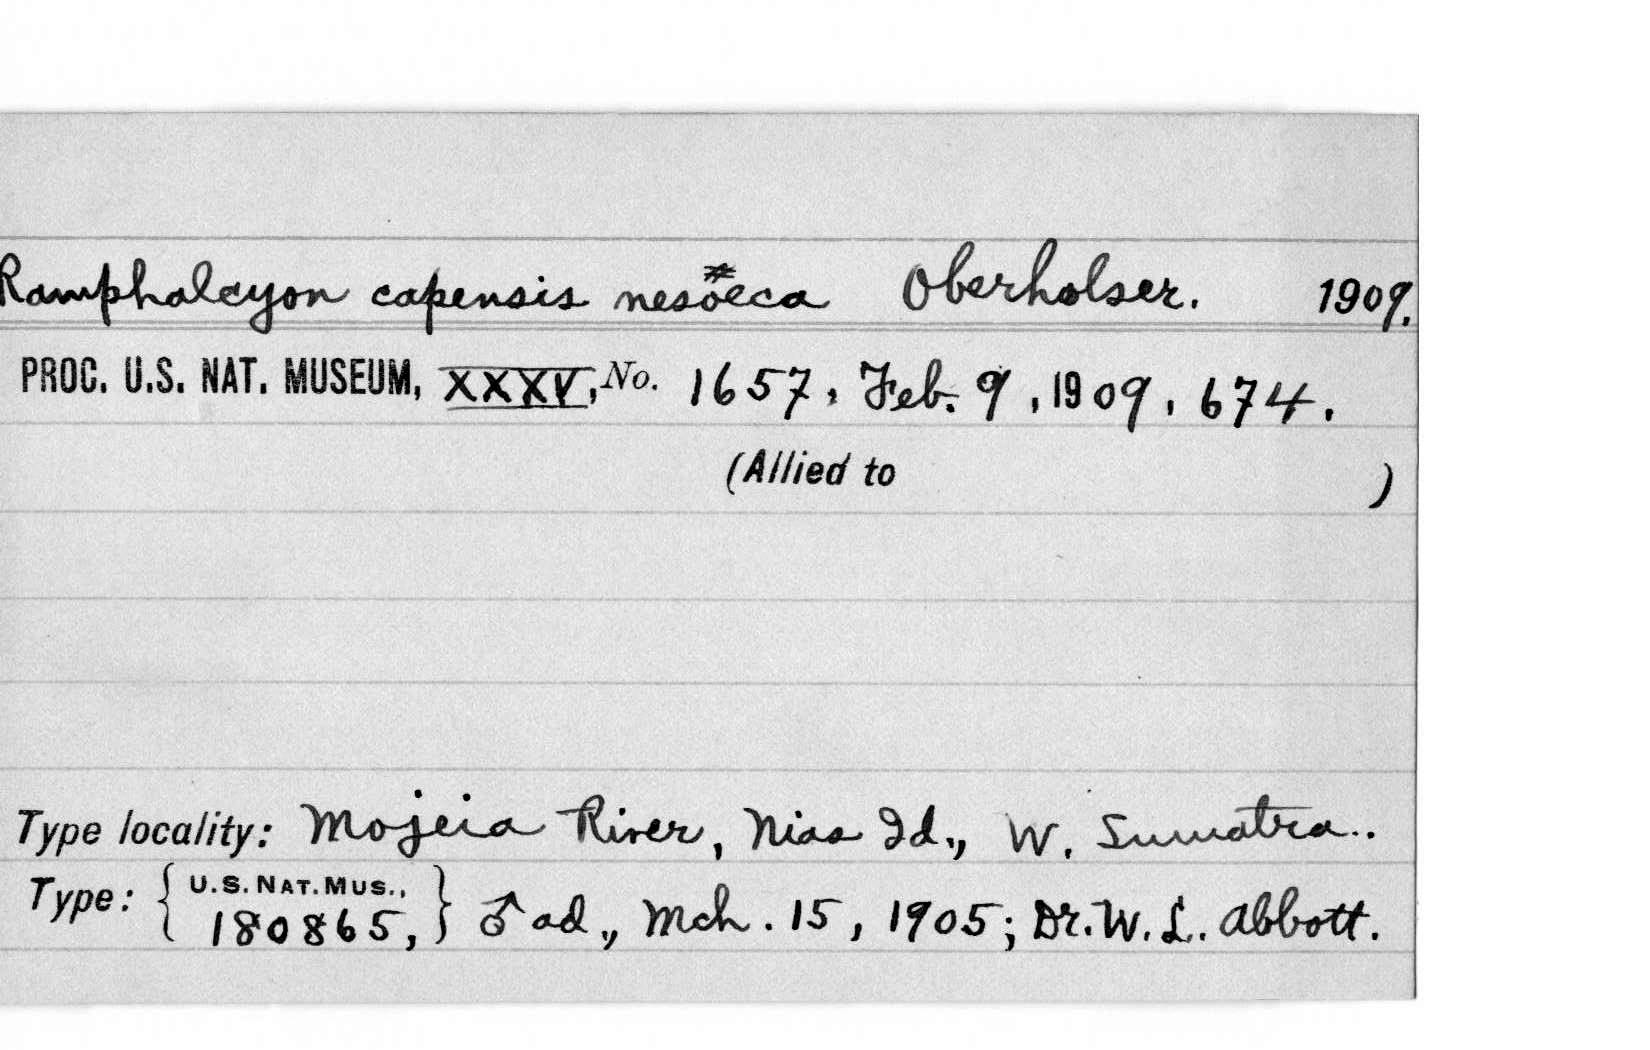 Ramphalcyon capensis nesœca Oberholser. 1909.
PROC. U.S. NAT. MUSEUM, XXXV, No. 1657, Feb. 9, 1909, 674.
(Allied to )
Type locality: Mojeia River, Nias Id., W. Sumatra..
Type: { U.S. NAT. MUS., 180865, } ♂ ad., Mch. 15, 1905; Dr. W. L. Abbott.